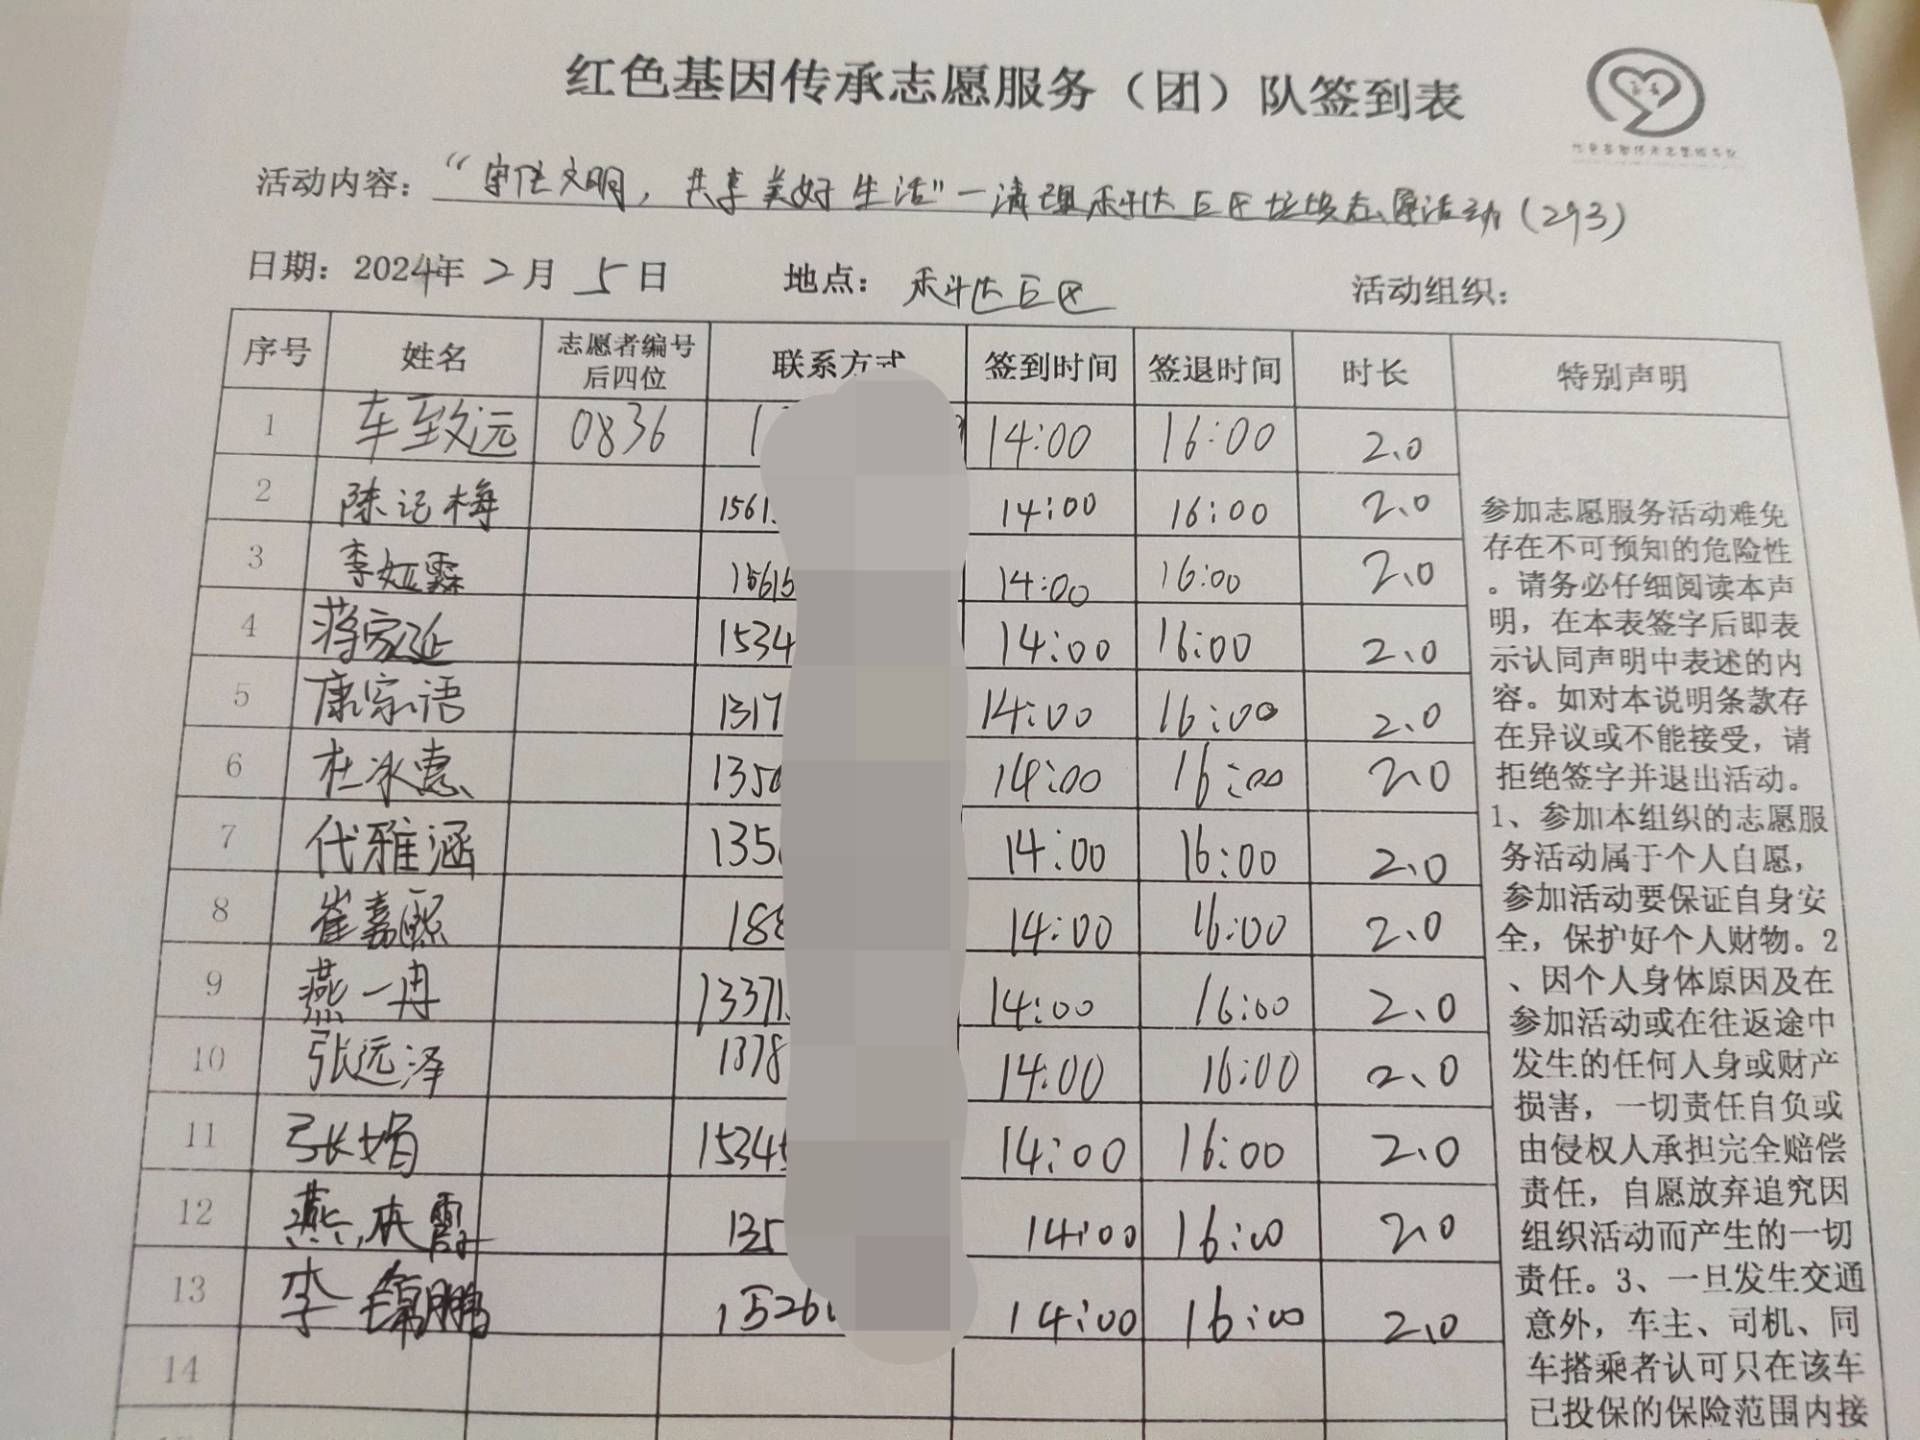 红色基因传承志愿服务（团）队签到表
活动内容：“守住文明，共享美好生活”—清理禾科达E区垃圾志愿活动（293）
日期：2024年2月5日 地点：禾科达E区 活动组织：
序号 姓名 志愿者编号后四位 联系方式 签到时间 签退时间 时长 特别声明
1 车致远 0836 1 14:00 16:00 2.0
2 陈记梅 1561 14:00 16:00 2.0
3 李娅霖 15615 14:00 16:00 2.0
4 蒋家延 1534 14:00 16:00 2.0
5 康宗语 1317 14:00 16:00 2.0
6 杜冰惠 1350 14:00 16:00 2.0
7 代雅涵 135 14:00 16:00 2.0
8 崔嘉熙 188 14:00 16:00 2.0
9 燕一冉 13371 14:00 16:00 2.0
10 张远泽 1378 14:00 16:00 2.0
11 张娟 15345 14:00 16:00 2.0
12 燕庆霞 135 14:00 16:00 2.0
13 李锦鹏 1526 14:00 16:00 2.0
14
参加志愿服务活动难免
存在不可预知的危险性
。请务必仔细阅读本声
明，在本表签字后即表
示认同声明中表述的内
容。如对本说明条款存
在异议或不能接受，请
拒绝签字并退出活动。
1、参加本组织的志愿服
务活动属于个人自愿，
参加活动要保证自身安
全，保护好个人财物。2
、因个人身体原因及在
参加活动或在往返途中
发生的任何人身或财产
损害，一切责任自负或
由侵权人承担完全赔偿
责任，自愿放弃追究因
组织活动而产生的一切
责任。3、一旦发生交通
意外，车主、司机、同
车搭乘者认可只在该车
已投保的保险范围内接